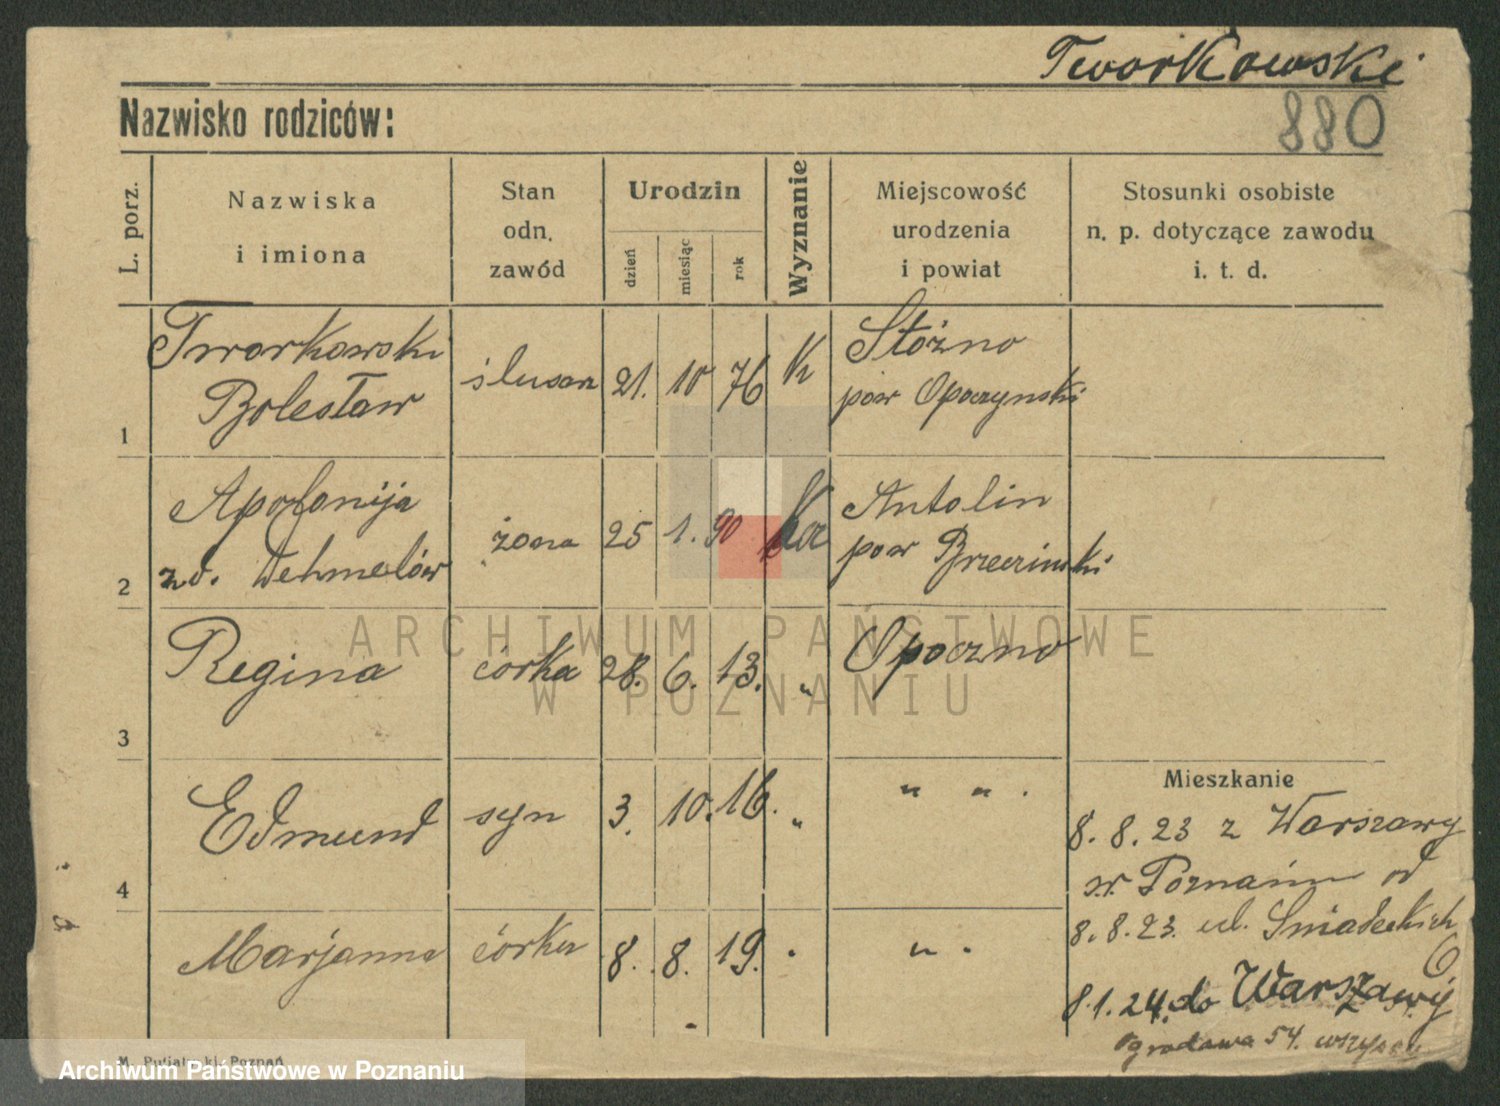 Tworkowski
Nazwisko rodziców:
880
L. porz.
Nazwiska
i imiona
Stan
odn.
zawód
Urodzin
dzień
miesiąc
rok
Wyznanie
Miejscowość
urodzenia
i powiat
Stosunki osobiste
n. p. dotyczące zawodu
i. t. d.
1
Tworkowski
Bolesław
ślusarz
21. 10 76
K
Stóżno
pow Opoczynski
2
Apolonija
z d. Wehmelów
żona
25 1. 90
ka
Antolin
pow Brzeziński
3
Regina
córka
28. 6. 13.
"
Opoczno
4
Edmund
syn
3. 10. 16.
"
" " .
Marjanna
córka
8. 8. 19.
"
" .
Mieszkanie
8. 8. 23 z Warszawy
w Poznaniu od
8. 8. 23. ul. Śniadeckich
6
8.1.24. do Warszawy
Ogrodowa 54. wszyscy
M. Putiatycki, Poznań
ARCHIWUM PAŃSTWOWE
W POZNANIU
Archiwum Państwowe w Poznaniu